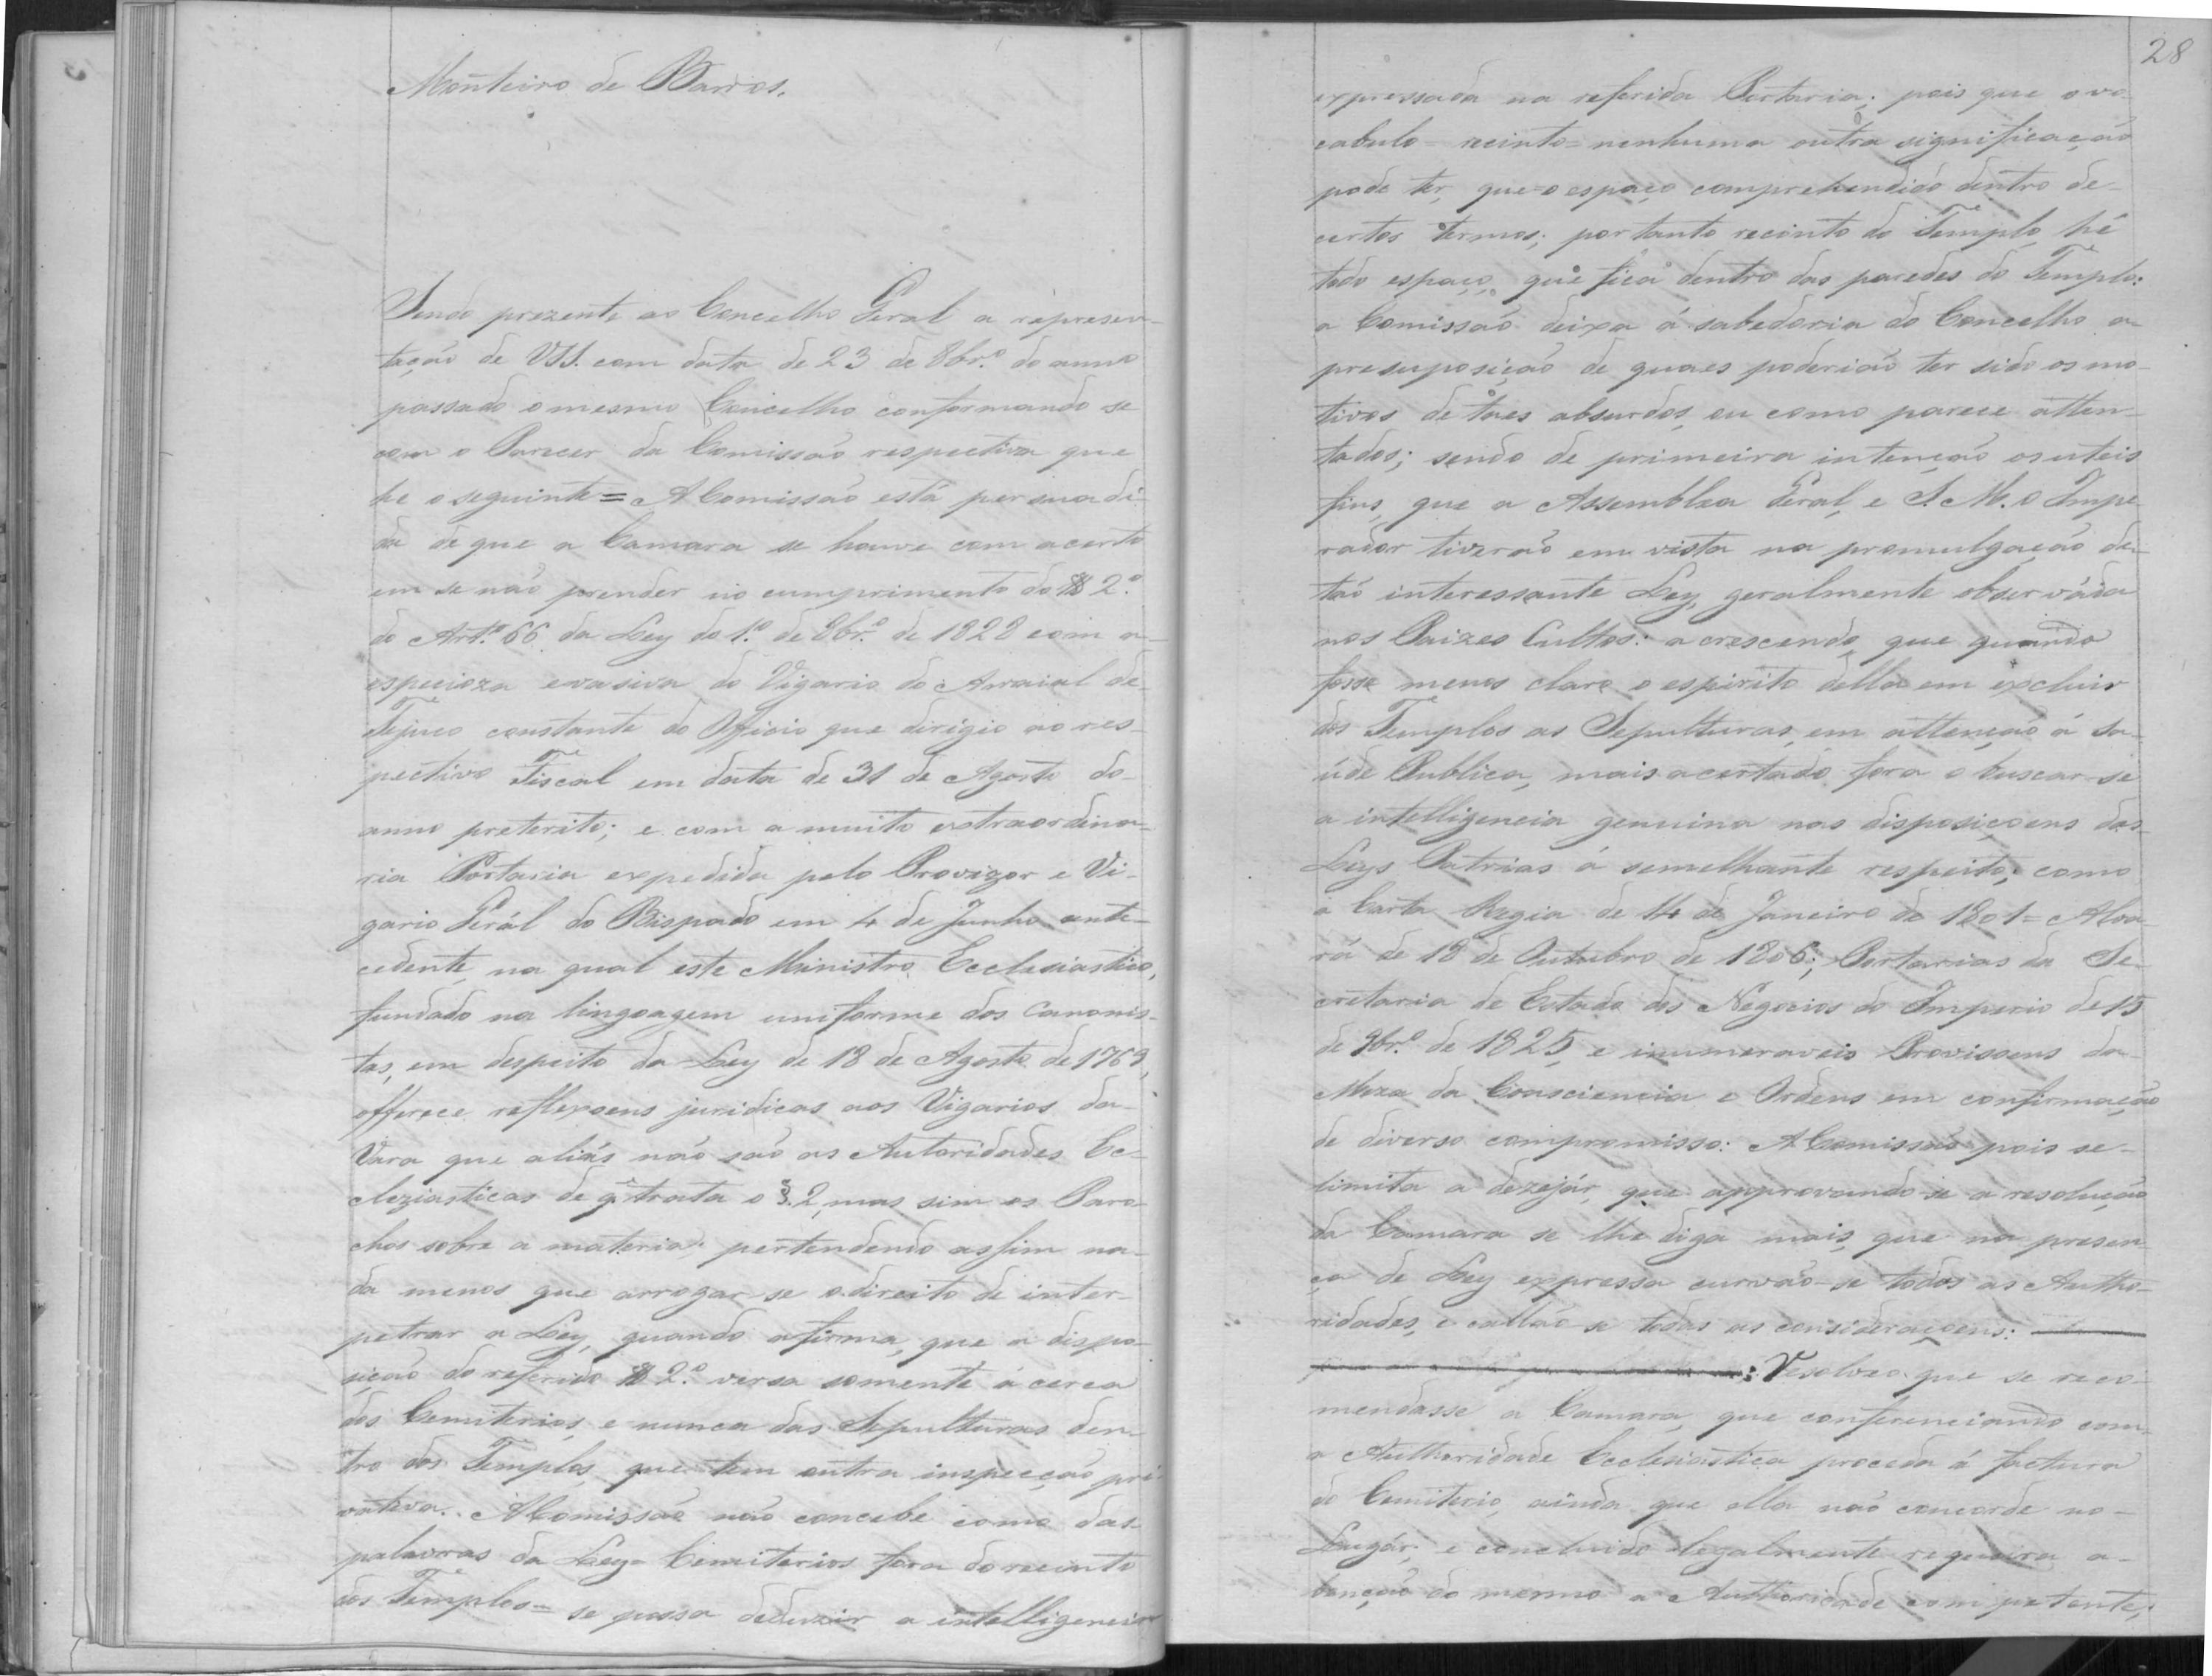 Monteiro de Barros.
Sendo prezente ao Concelho Geral a represen-
tação de VSS. com data de 23 de 8br.º do anno
passado o mesmo Concelho conformando se
com o Parecer da Comissão respectiva que
he o seguinte = A Comissão está persuadi-
da de que a Camara se houve com acerto
em se não prender no cumprimento do § 2.º
do Art.º 66 da Ley do 1.º de 8br.º de 1828 com a
especioza evasiva do Vigario do Arraial de
Tejuco constante do Officio que dirigio ao res-
pectivo Fiscal em data de 31 de Agosto do
anno preterito; e com a muito extraordina-
ria Portaria expedida pelo Provizor e Vi-
gario Gerál do Bispado em 4 de Junho ante-
cedente, na qual este Ministro Ecclesiastico,
fundado na lingoagem uniforme dos Canonis-
tas, em despeito da Ley de 18 de Agosto de 1769,
offerece reflexoens juridicas aos Vigarios da
Vara que aliás não são as Autoridades Ec-
cleziasticas de q̃ trata o § 2, mas sim os Paro-
chos sobre a materia; pertendendo assim na-
da menos que arrogar-se o direito de inter-
petrar a Ley, quando afirma, que a dispo-
sição do referido § 2.º versa somente á cerca
dos Cemiterios, e nunca das Sepulturas den-
tro dos Templos, que tem outra inspecção pri-
vativa. A Comissão não concebe como das
palavras da Ley = Cemiterios fora do recinto
dos Templos = se possa deduzir a intelligencia
28
expressada na referida Portaria; pois que o vo-
cabulo = recinto = nenhuma outra significação
pode ter, que o espaço comprehendido dentro de
certos termos; por tanto recinto do Templo hé
todo espaço, que fica dentro das paredes do Templo:
a Comissão deixa á sabedoria do Concelho a
presuposição de quaes poderião ter sido os mo-
tivos de taes absurdos, ou como parece atten-
tados; sendo de primeira intenção os uteis
fins, que a Assemblea Geral, e S. M. o Impe-
rador tiverão em vista na promulgação de
tão interessante Ley, geralmente observáda
nos Paizes Cultos: a crescendo, que quando
fosse menos claro o espirito della em excluir
dos Templos as Sepulturas, em attenção á Sa-
úde Publica, mais acertado fora o buscar-se
a intelligencia genuina nas disposiçoens das
Leys Patrias á semelhante respeito; como
a Carta Regia de 14 de Janeiro de 1801 = Alva-
rá de 18 de Outubro de 1806; Portarias da Se-
cretaria de Estado dos Negocios do Imperio de 15
de 9br.º de 1825, e inumeraveis Provisoens da
Meza da Consciencia e Ordens em confirmação
de diverso compromisso: A Comissão pois se
limita a dezejár, que approvando-se a resolução
da Camara se lhe diga mais, que na presen-
ça de Ley expressa curvão-se todas as Autho-
ridades, e callão-se todas as consideraçoens:
: Resolveo que se reco-
mendasse a Camara, que conferenciando com
a Authoridade Ecclesiastica proceda á factura
do Cemiterio, ainda que ella não concorde no
Lugár, e concluido legalmente requeira a
benção do mesmo a Authoridade competente;